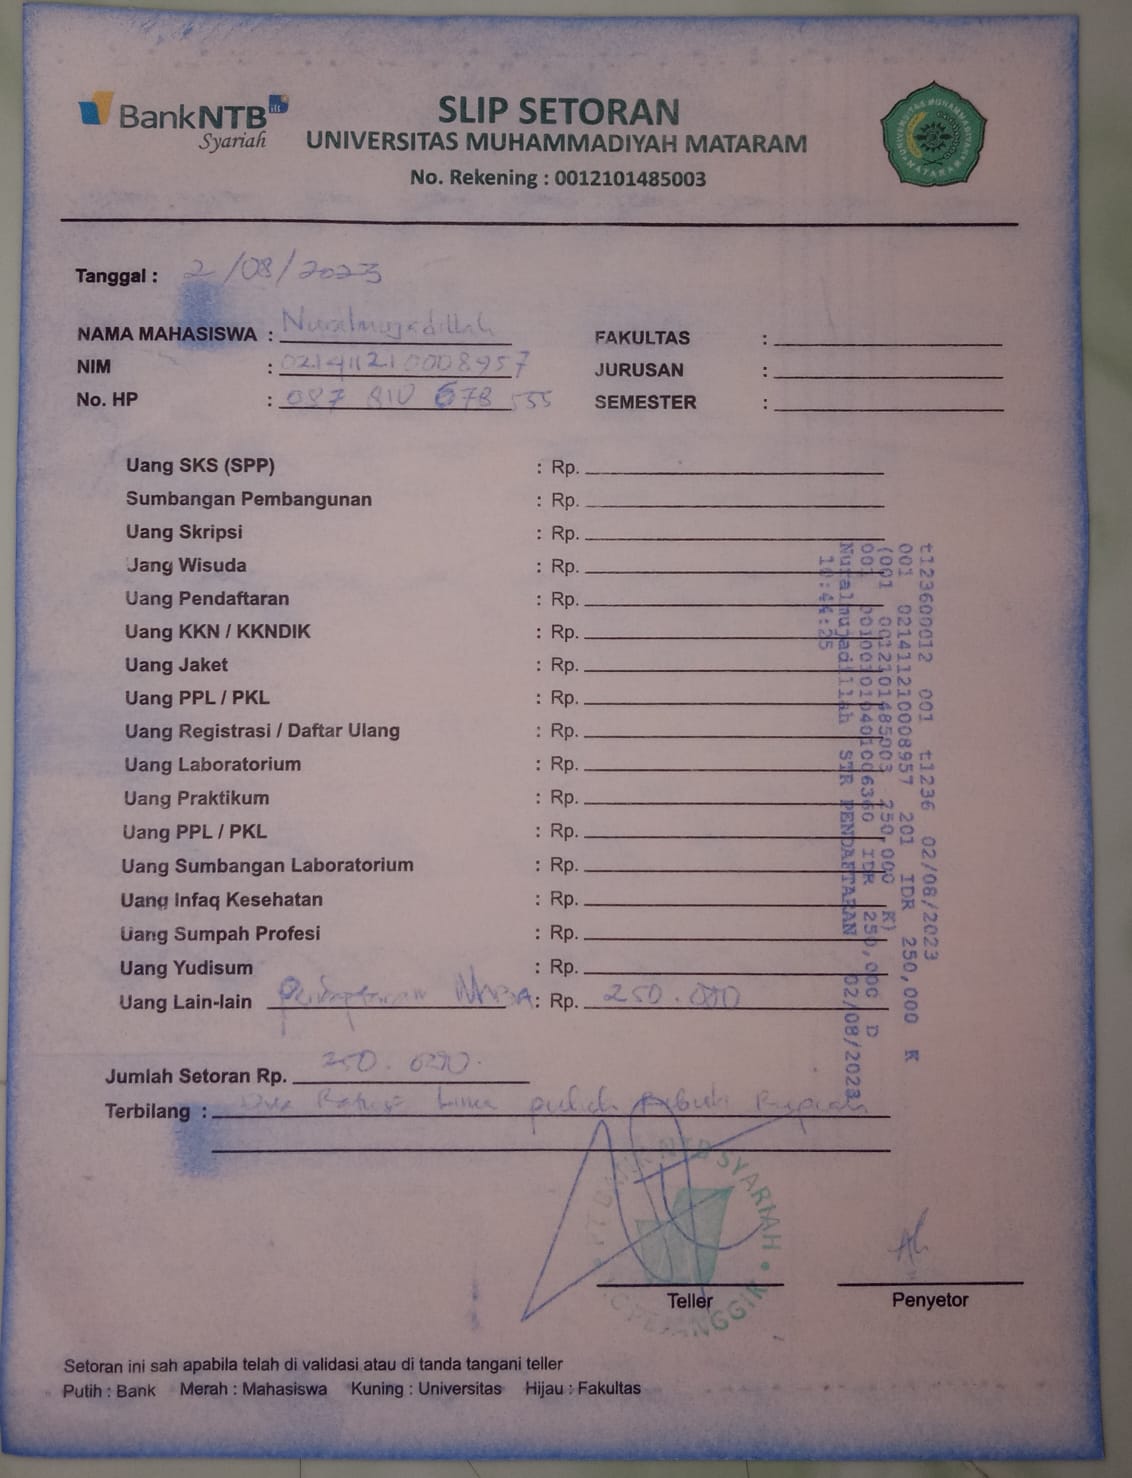 BankNTB
Syariah
SLIP SETORAN
UNIVERSITAS MUHAMMADIYAH MATARAM
No. Rekening : 0012101485003
UNIVERSITAS MUHAMMADIYAH MATARAM
Tanggal : 2/08/2023
NAMA MAHASISWA : Nuralmujadillah
NIM : 021411210008957
No. HP : 087 810 678 555
FAKULTAS :
JURUSAN :
SEMESTER :
Uang SKS (SPP) : Rp.
Sumbangan Pembangunan : Rp.
Uang Skripsi : Rp.
Uang Wisuda : Rp.
Uang Pendaftaran : Rp.
Uang KKN / KKNDIK : Rp.
Uang Jaket : Rp.
Uang PPL / PKL : Rp.
Uang Registrasi / Daftar Ulang : Rp.
Uang Laboratorium : Rp.
Uang Praktikum : Rp.
Uang PPL / PKL : Rp.
Uang Sumbangan Laboratorium : Rp.
Uang Infaq Kesehatan : Rp.
Uang Sumpah Profesi : Rp.
Uang Yudisum : Rp.
Uang Lain-lain Pendaftaran MABA : Rp. 250.000
Jumlah Setoran Rp. 250.000
Terbilang : Dua Ratus Lima puluh Ribu Rupiah
t123600012 001 t1236 02/08/2023
001 021411210008957 201 IDR 250,000 K
(001 0012101485003 250,000 K)
001 IDR 250,000 D
Nuralmujadillah STR PENDAFTARAN 02/08/2023
10:44:25
NTB SYARIAH
Teller
Penyetor
Setoran ini sah apabila telah di validasi atau di tanda tangani teller
Putih : Bank Merah : Mahasiswa Kuning : Universitas Hijau : Fakultas